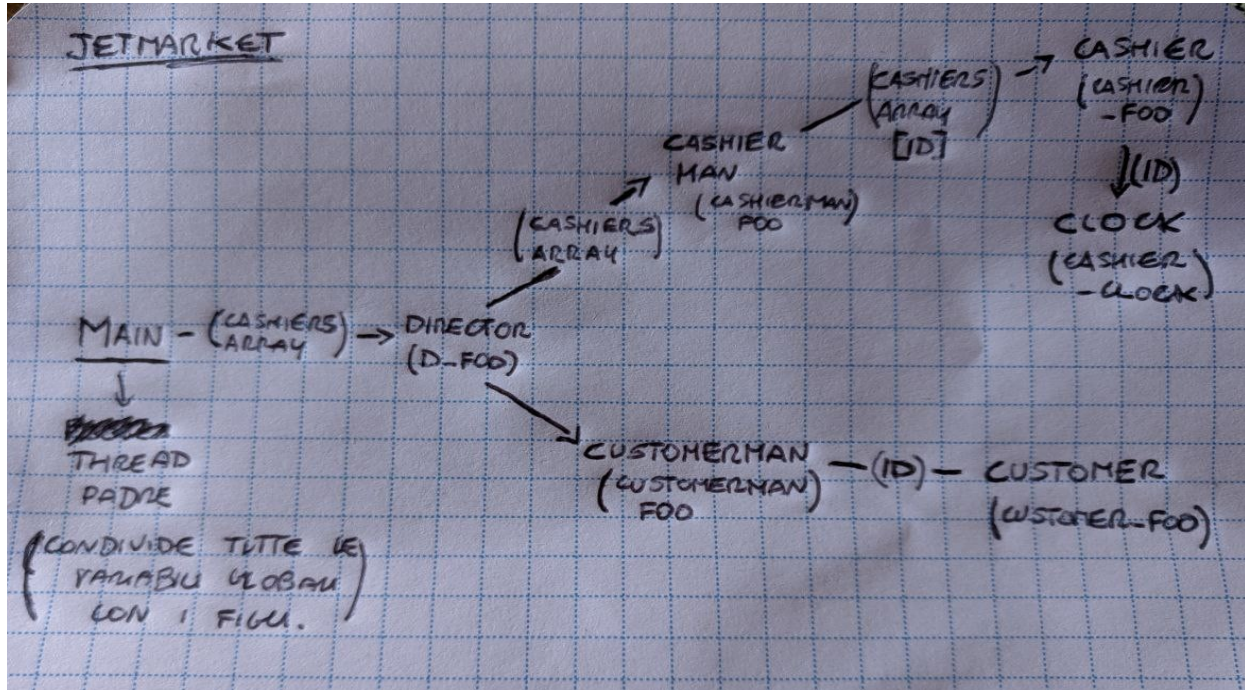 JETMARKET
CASHIER
(CASHIER
-FOO)
↓(ID)
CLOCK
(CASHIER
-CLOCK)
(CASHIERS
ARRAY
[ID])
CASHIER
MAN
(CASHIERMAN
FOO)
(CASHIERS
ARRAY)
MAIN - (CASHIERS
ARRAY) → DIRECTOR
(D_FOO)
THREAD
PADRE
(CONDIVIDE TUTTE LE
VARIABILI GLOBALI
CON I FIGLI.)
CUSTOMERMAN — (ID) — CUSTOMER
(CUSTOMERMAN
FOO)
(CUSTOMER_FOO)